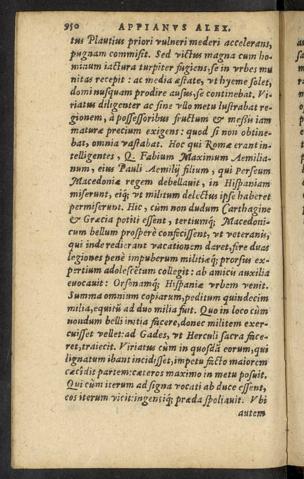 950 APPIANVS ALEX.
tus Plautius priori vulneri mederi accelerans,
pugnam commisit. Sed victus magna cum ho-
minum iactura turpiter fugiens, se in vrbes mu
nitas recepit: ac media æstate, vt hyeme solet,
domi nusquam prodire ausus, se continebat. Vi-
riatus diligenter ac sine vllo metu lustrabat re-
gionem, à possessoribus fructum & messiu iam
maturæ precium exigens: quod si non obtine-
bat, omnia vastabat. Hoc qui Romæ erant in-
telligentes, Q. Fabium Maximum Aemilia-
num, eius Pauli Aemilij filium, qui Perseum
Macedoniæ regem debellauit, in Hispaniam
miserunt, eiq; vt militum delectus ipse haberet
permiserunt. Hic, cùm non dudum Carthagine
& Græcia potiti essent, tertiumq; Macedoni-
cum bellum prosperè confecissent, vt veteranis,
qui inde redierant vacationem daret, fire duas
legiones penè impuberum militiæq; prorsus ex-
pertium adolescētum collegit: ab amicis auxilia
euocauit: Orsonamq; Hispaniæ vrbem venit.
Summa omnium copiarum, peditum quindecim
milia, equitū ad duo milia fuit. Quo in loco cùm
nondum belli initia facere, donec militem exer-
cuisset vellet: ad Gades, vt Herculi sacra face-
ret, traiecit. Viriatus cùm in quosdā eorum, qui
lignatum ibant incidisset, impetu facto maiorem
cæcidit partem: cæteros maximo in metu posuit.
Qui cùm iterum ad signa vocati ab duce essent,
eos iterum vicit: ingentiq; præda spoliauit. Vbi
autem